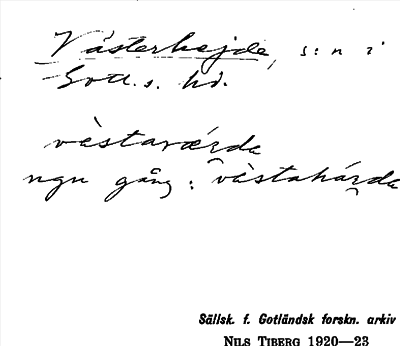 Västerhejde, s:n i
Gotl. s. hd.
västaværda
ngn gång: västahárda
Sällsk. f. Gotländsk forskn. arkiv
NILS TIBERG 1920—23